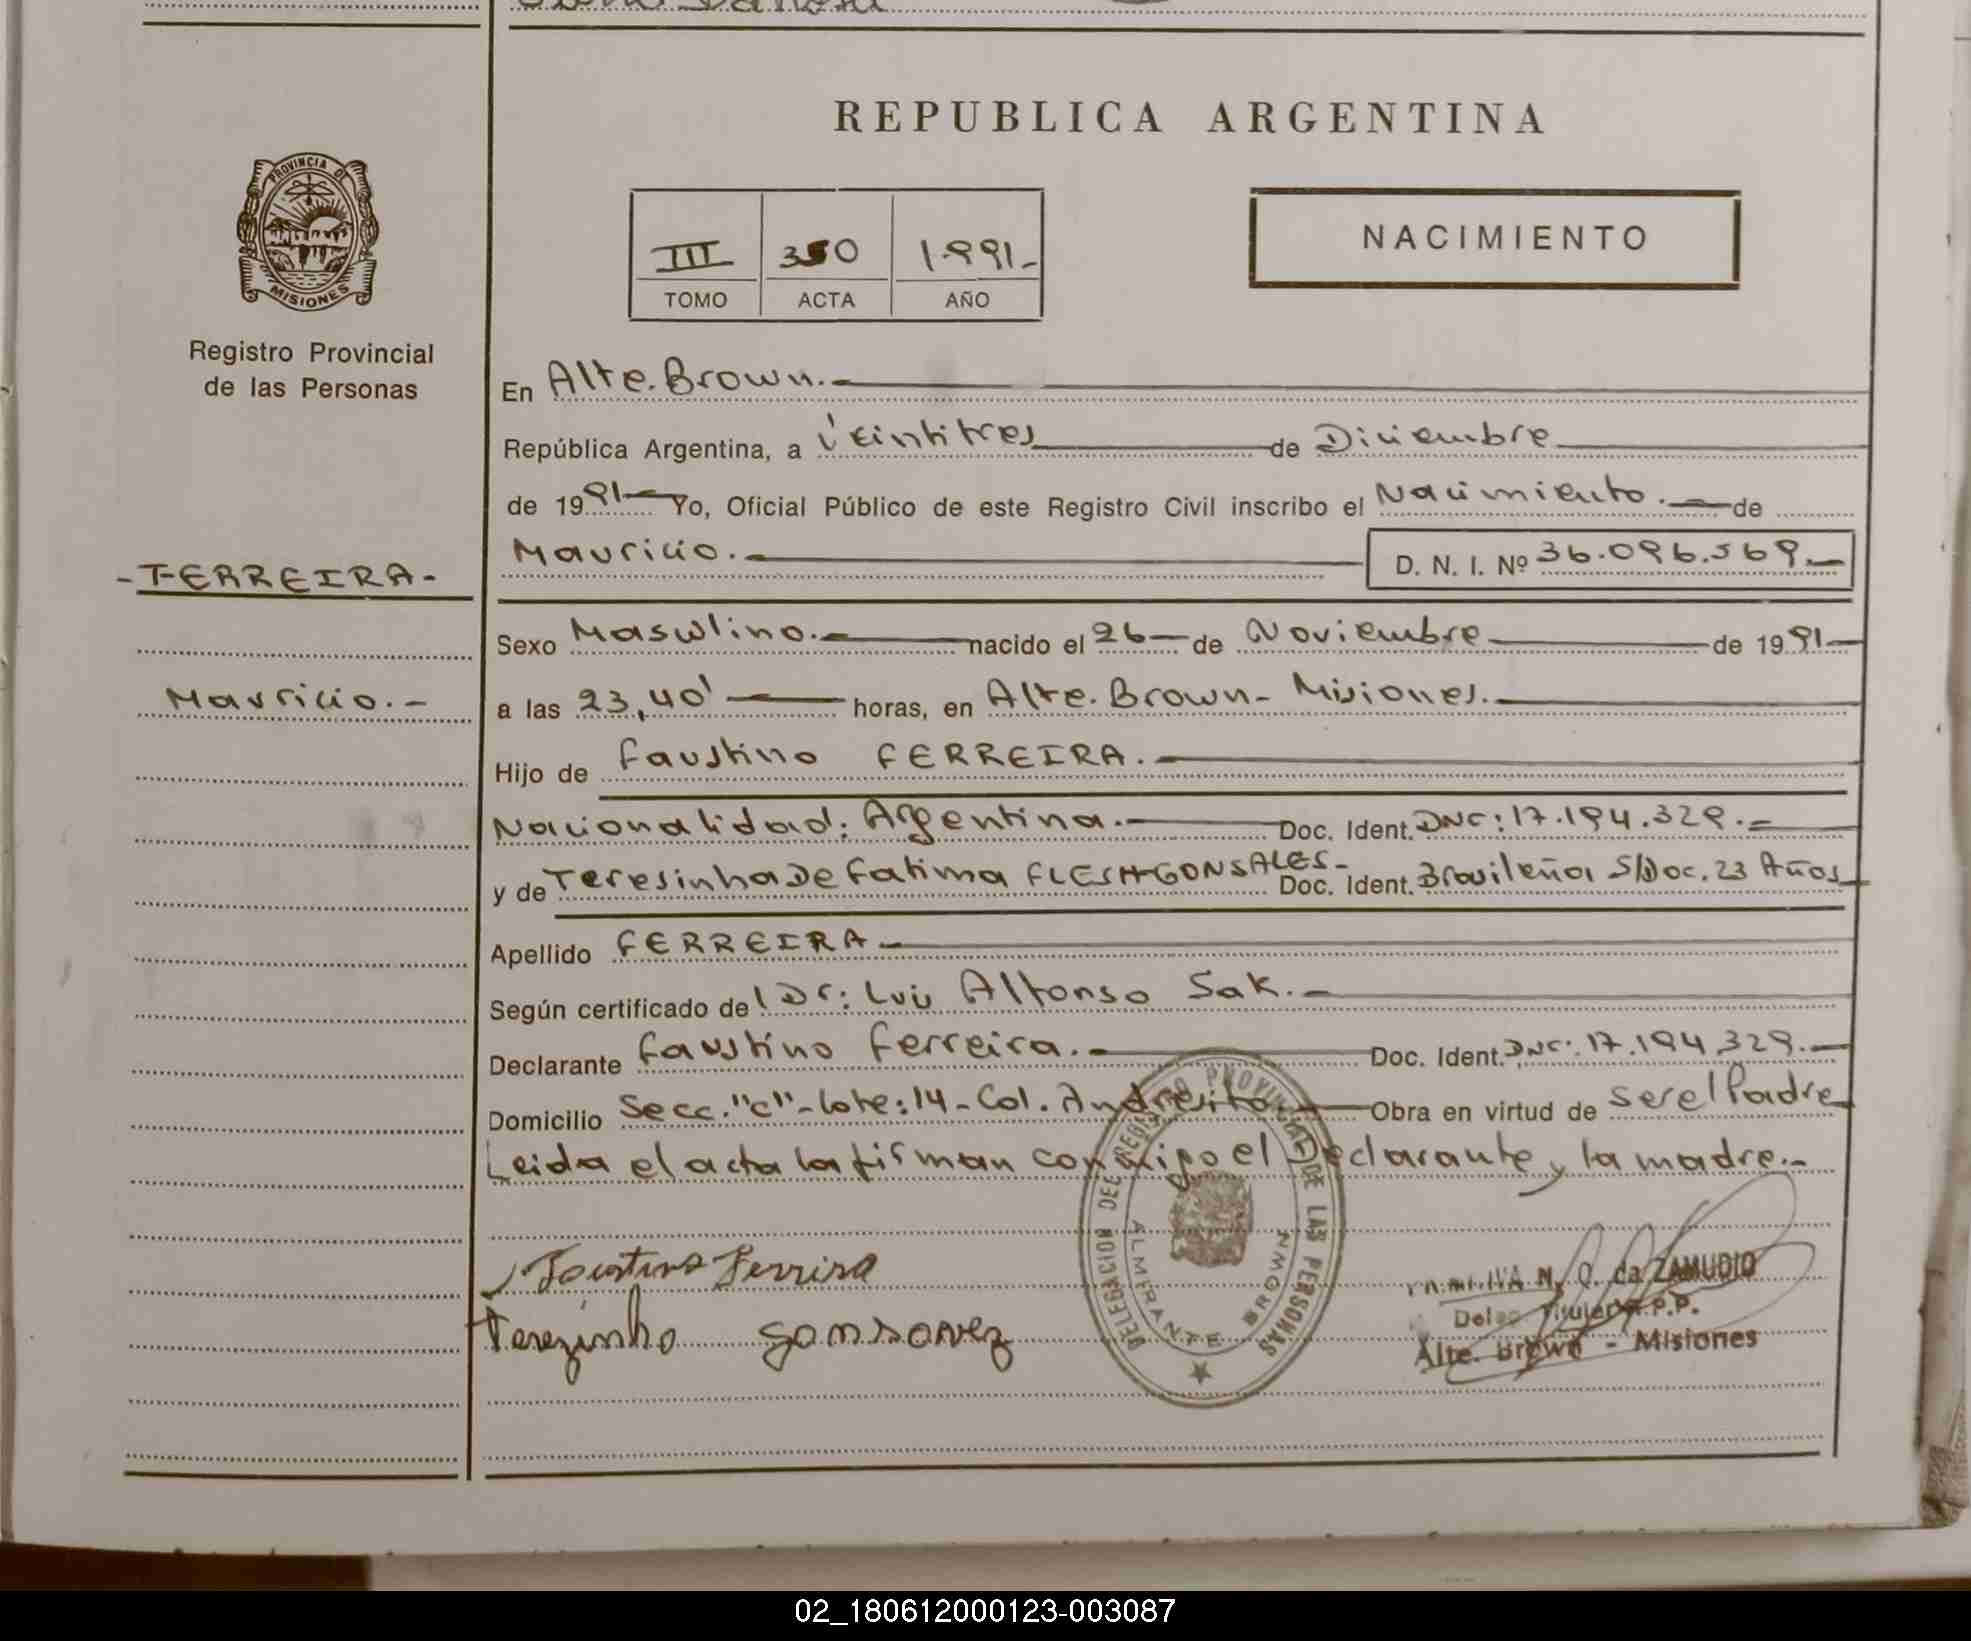 REPUBLICA ARGENTINA
PROVINCIA DE
MISIONES
Registro Provincial
de las Personas
III 350 1.991-
TOMO ACTA AÑO
NACIMIENTO
En Alte. Brown.-
República Argentina, a Veintitres de Diciembre
de 1991- Yo, Oficial Público de este Registro Civil inscribo el Nacimiento.- de
Mauricio.- D. N. I. Nº 36.096.569.-
-FERREIRA-
Mauricio.-
Sexo Masculino.- nacido el 26- de Noviembre de 1991-
a las 23,40' horas, en Alte. Brown- Misiones.-
Hijo de Faustino FERREIRA.-
Nacionalidad: Argentina.- Doc. Ident. DNC: 17.194.329.-
y de Teresinha De Fatima GONSALES- Doc. Ident. Brasileña S/Doc. 23 Años
Apellido FERREIRA-
Según certificado del Dr: Luis Alfonso Sak.-
Declarante Faustino Ferreira.- Doc. Ident. DNC: 17.194.329.-
Domicilio Secc. "C"- Lote: 14- Col. Andresito.- Obra en virtud de ser el Padre
Leida el acta la firman conmigo el Declarante y la madre.-
DELEGACION DEL REGISTRO PROVINCIAL DE LAS PERSONAS
ALMIRANTE BROWN
Faustino Ferreira
Terezinha
N. Q. da ZAMUDIO
Deleg. Titular R.P.P.
Alte. Brown - Misiones
02_180612000123-003087